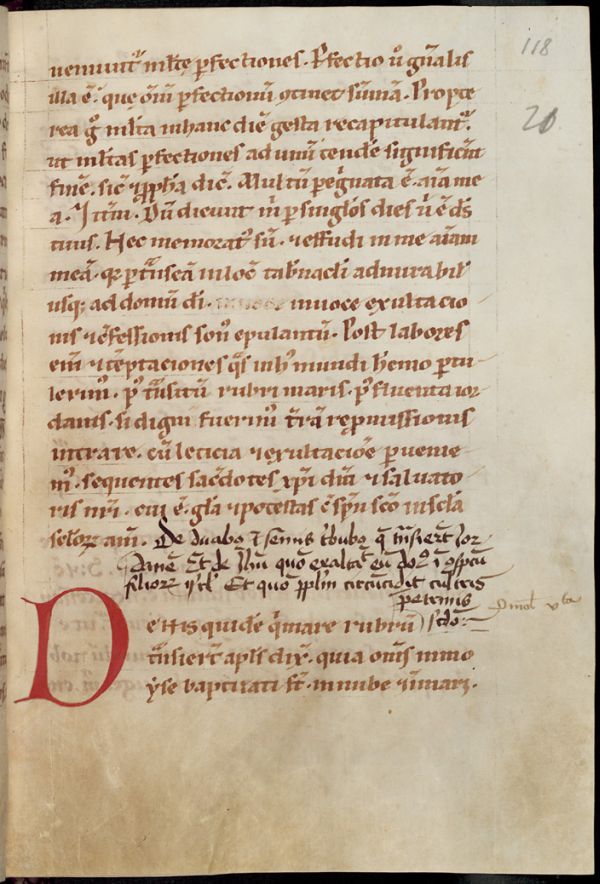 118
20
ueniunt᷑ mlte ꝑfectiones. Ꝑfectio u̾ gn̄alis
illa ē. que om̄iū ꝑfectionū ꝯtinet sūmā. Propte
rea gͦ mlta in hanc diē gesta recapitulant᷑.
ut mltas ꝑfectiones ad unū tendere
finē. sic̄ ꝓpha dic̄. Multū peg̾nata ē. aīa me
a. Itm̄. Dū dicunt᷑ m̄ ꝑ singlos dies u̾ ē ds̄
tuus. Hec memorat᷑ sū. ⁊ effudi in me aīam
meā. qr̄ ꝑt̾nseā in locū tab̾nacli admirabil
usq; ad domū di. in uoce exultacio
nis ⁊ ꝯfessionis son᷑ epulant᷑. Post labores
eni ⁊ tēptaciones qͣs in hͦ mundi h̾emo ꝑtu
lerim᷒. pͦ t̾nsitū rubri maris. pͦ fluenta ior
danis. si digni fuerim᷒ t̾rā reꝓmissionis
intrare. cū leticia ⁊ exultacioe ꝑuenie
m᷒. sequentes sac̾dotes xp̄i dn̄i ⁊ saluato
ris nr̄i. cui ē gla ⁊ potestas ī
sclo𝑟ꝝ am̄. De duabꝫ ⁊ semis t͛bubꝫ q̄ t̾nsier̄t Jor
danē Et de Jhu quō exaltat᷑ eū dn̄s ī ꝯspcū
filioꝝ isrl Et quō pplm circūcidit cult̾is
petrinis
De his quidē q̄ mare rubrū
t̾nsier̄t apls dix̄. quia om̄s in mo
yse baptizati st̄. in nube ⁊ in mari.